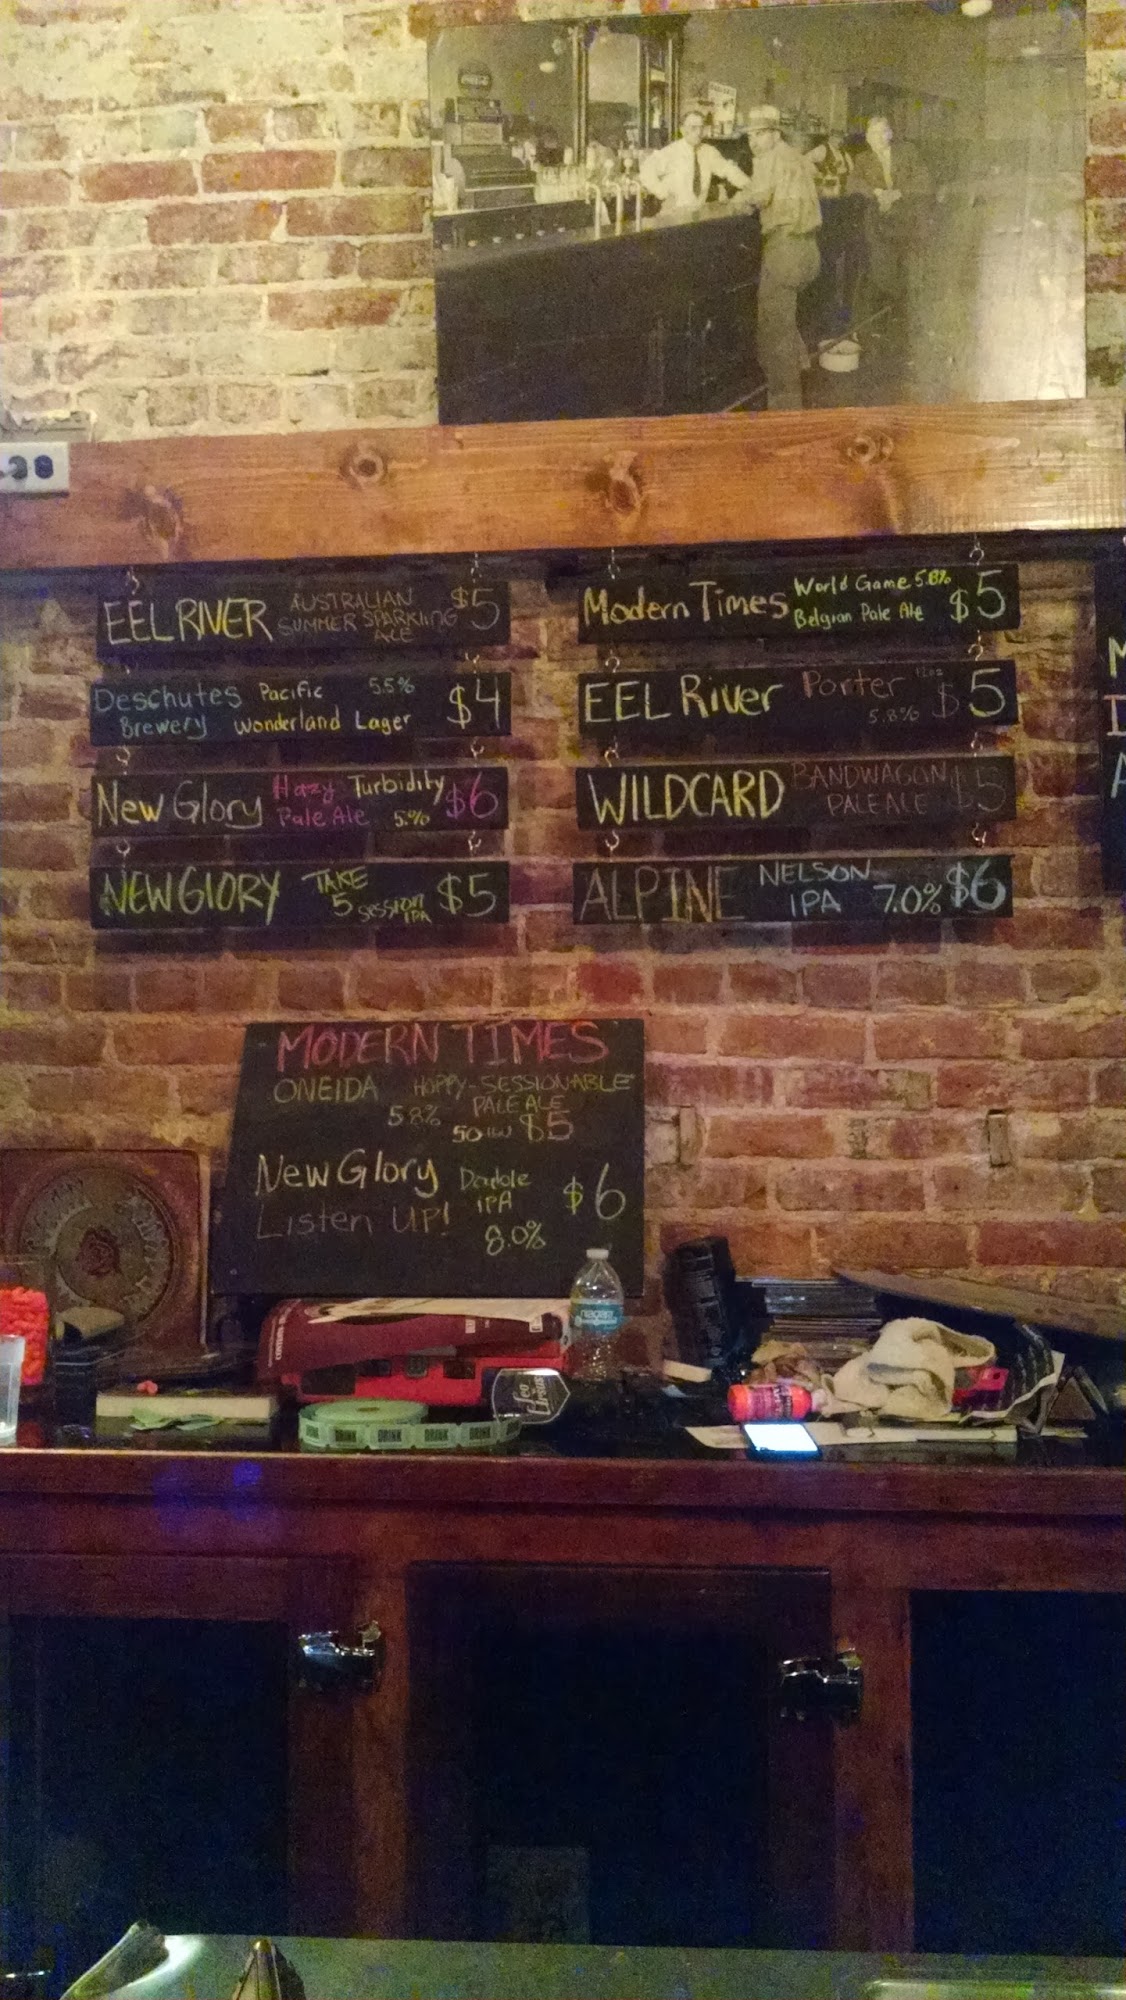 EEL RIVER AUSTRALIAN SUMMER SPARKLING ALE $5
Deschutes Brewery Pacific Wonderland Lager 5.5% $4
New Glory Hazy Pale Ale Turbidity 5.% $6
NEW GLORY TAKE 5 SESSION IPA $5
Modern Times World Game 5.8% Belgian Pale Ale $5
EEL River Porter 12oz 5.8% $5
WILDCARD BANDWAGON PALE ALE $5
ALPINE NELSON IPA 7.0% $6
MODERN TIMES
ONEIDA HOPPY-SESSIONABLE
PALE ALE
5.8% $5
New Glory Double IPA $6
Listen UP! 8.0%
DRINK DRINK DRINK